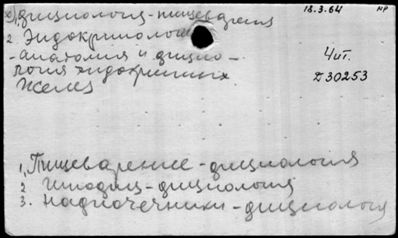 18.3.64 НР
2) физиология - пищеварения
2. Эндокринология
- анатомия и физио-
логия эндокринных
желез
Чит.
Д 30253
1. Пищеварение - физиология
2 гипофиз - физиология
3. надпочечники - физиология